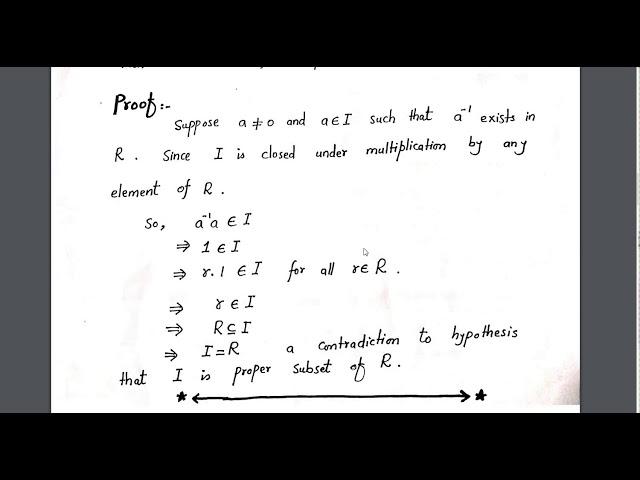 Proof:-
Suppose a ≠ 0 and a ∈ I such that a⁻¹ exists in
R. Since I is closed under multiplication by any
element of R.
So, a⁻¹a ∈ I
⇒ 1 ∈ I
⇒ r.1 ∈ I for all r ∈ R.
⇒ r ∈ I
⇒ R ⊆ I
⇒ I = R a contradiction to hypothesis
that I is proper subset of R.